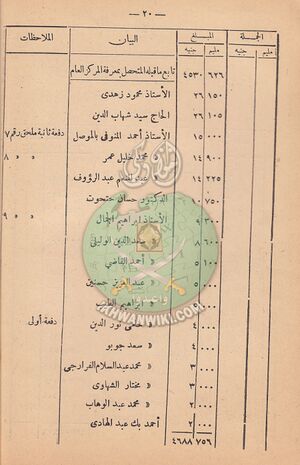 — ٢٠ —
الجملة المبلغ البيان الملاحظات
مليم جنيه مليم جنيه
٦٢٦ ٤٥٣٠ تابع ماقبله المتحصل بمعرفة المركز العام
١٥٠ ٢٦ الأستاذ محمود زهدى
١٥٠ ٢٦ الحاج سيد شهاب الدين
٠٠٠ ١٥ الأستاذ أحمد المنوفى بالموصل دفعة ثانية ملحق رقم ٧
٩٠٠ ١٤ « محمد خليل عمر « « ٨
٢٢٥ ١٤ « عبد المنعم عبد الرؤوف
٧٥٠ الدكتور حسان حتحوت
٣٠٠ ٩ الأستاذ ابراهيم الجمال « « ٩
٦٠٠ ٨ الدين الوليلى
١٠٠ ٥ « أحمد القاضى
٠٠٠ « عبد العزيز حسنين
٠٠٠ « ابراهيم
٠٠٠ ٤ نور الدين دفعة أولى
٠٠٠ ٤ « سعد جويو
٠٠٠ ٣ « محمد عبد السلام الفرارجى
٠٠٠ ٣ « مختار الشهاوى
٠٠٠ ٢ « محمد عبد الوهاب
٠٠٠ ٢ أحمد بك عبد الهادى
٧٥٦ ٤٦٨٨
واعدوا
IKHWANWIKI.COM